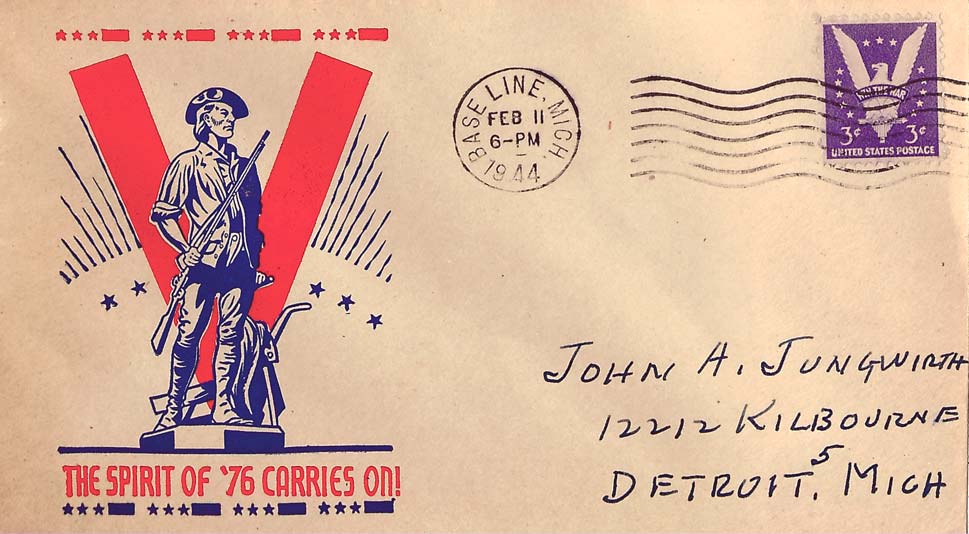 BASE LINE, MICH
FEB 11
6-PM
1944
WIN THE WAR
3¢ 3¢
UNITED STATES POSTAGE
JOHN A. JUNGWIRTH
12212 KILBOURNE
DETROIT, 5 MICH
THE SPIRIT OF '76 CARRIES ON!